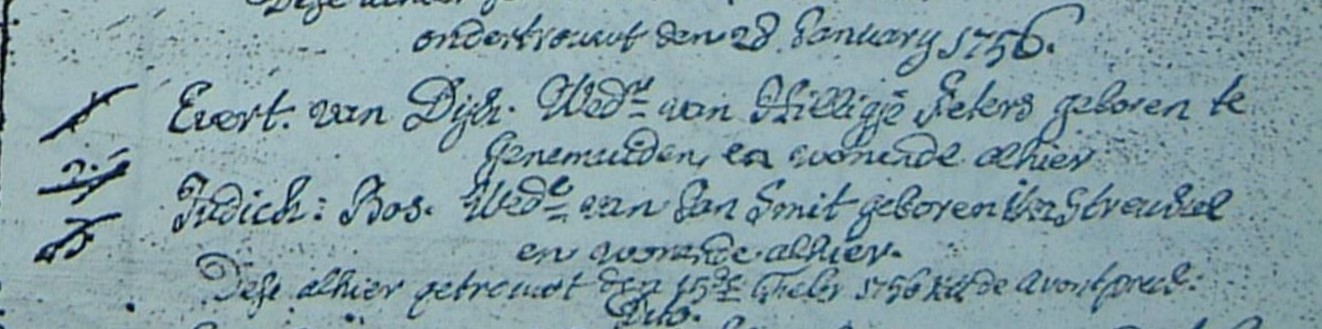 Dese alhier
ondertrouwt den 28 January 1756.
Evert. van Dijk. Wedr van Hilligje Peters geboren te
Genemuiden, en wonende alhier
Judich: Bos. Wede van Jan Smit geboren Streukel
en wonende alhier.
Dese alhier getrouwt den 15de Febr 1756 de avontpred:
Dito.